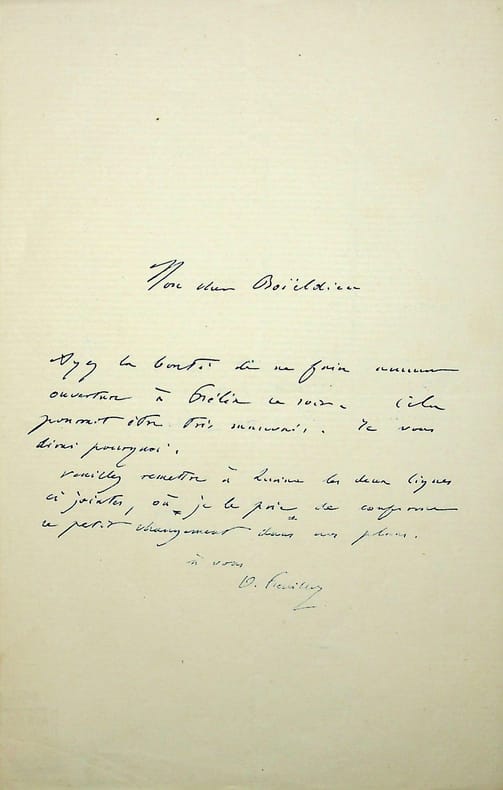 Mon cher Boïeldieu
Ayez la bonté de ne faire aucune
ouverture à Félix ce soir. Cela
pourrait être très mauvais. Je vous
dirai pourquoi.
Veuillez remettre à les deux lignes
ci jointes, où je le prie de
ce petit changement dans nos plans.
à vous
O. Feuillet